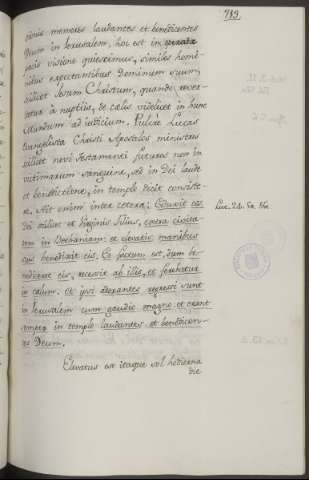 789.
omnis memores laudantes et benedicentes
Deum in Ierusalem, hoc est in
pacis visione quiescimus, similes homi-
nibus expectantibus Dominum suum,
scilicet Iesum Christum, quando rever-
tatur a nuptiis, de caelis videlicet in hunc
Mundum ad iudicium. Pulcre Lucas
Evangelista Christi Apostolos ministros
scilicet novi testamenti futuros non in
victimarum sanguine, sed in Dei laude
et benedictione, in templo dicit consiste-
re. Ait enim inter cetera: Eduxit eos
dei scilicet et Virginis Filius, extra civita-
tem in Bethaniam: et elevatis manibus
suis benedixit eis. Et factum est, dum be-
nediceret eis, recessit ab illis, et ferebatur
in caelum. Et ipsi adorantes regressi sunt
in Ierusalem cum gaudio magno: et erant
semper in templo laudantes et benedicen-
tes Deum.
Luc. 24. 50. 51.
Elevatus est itaque sol hodierna
die